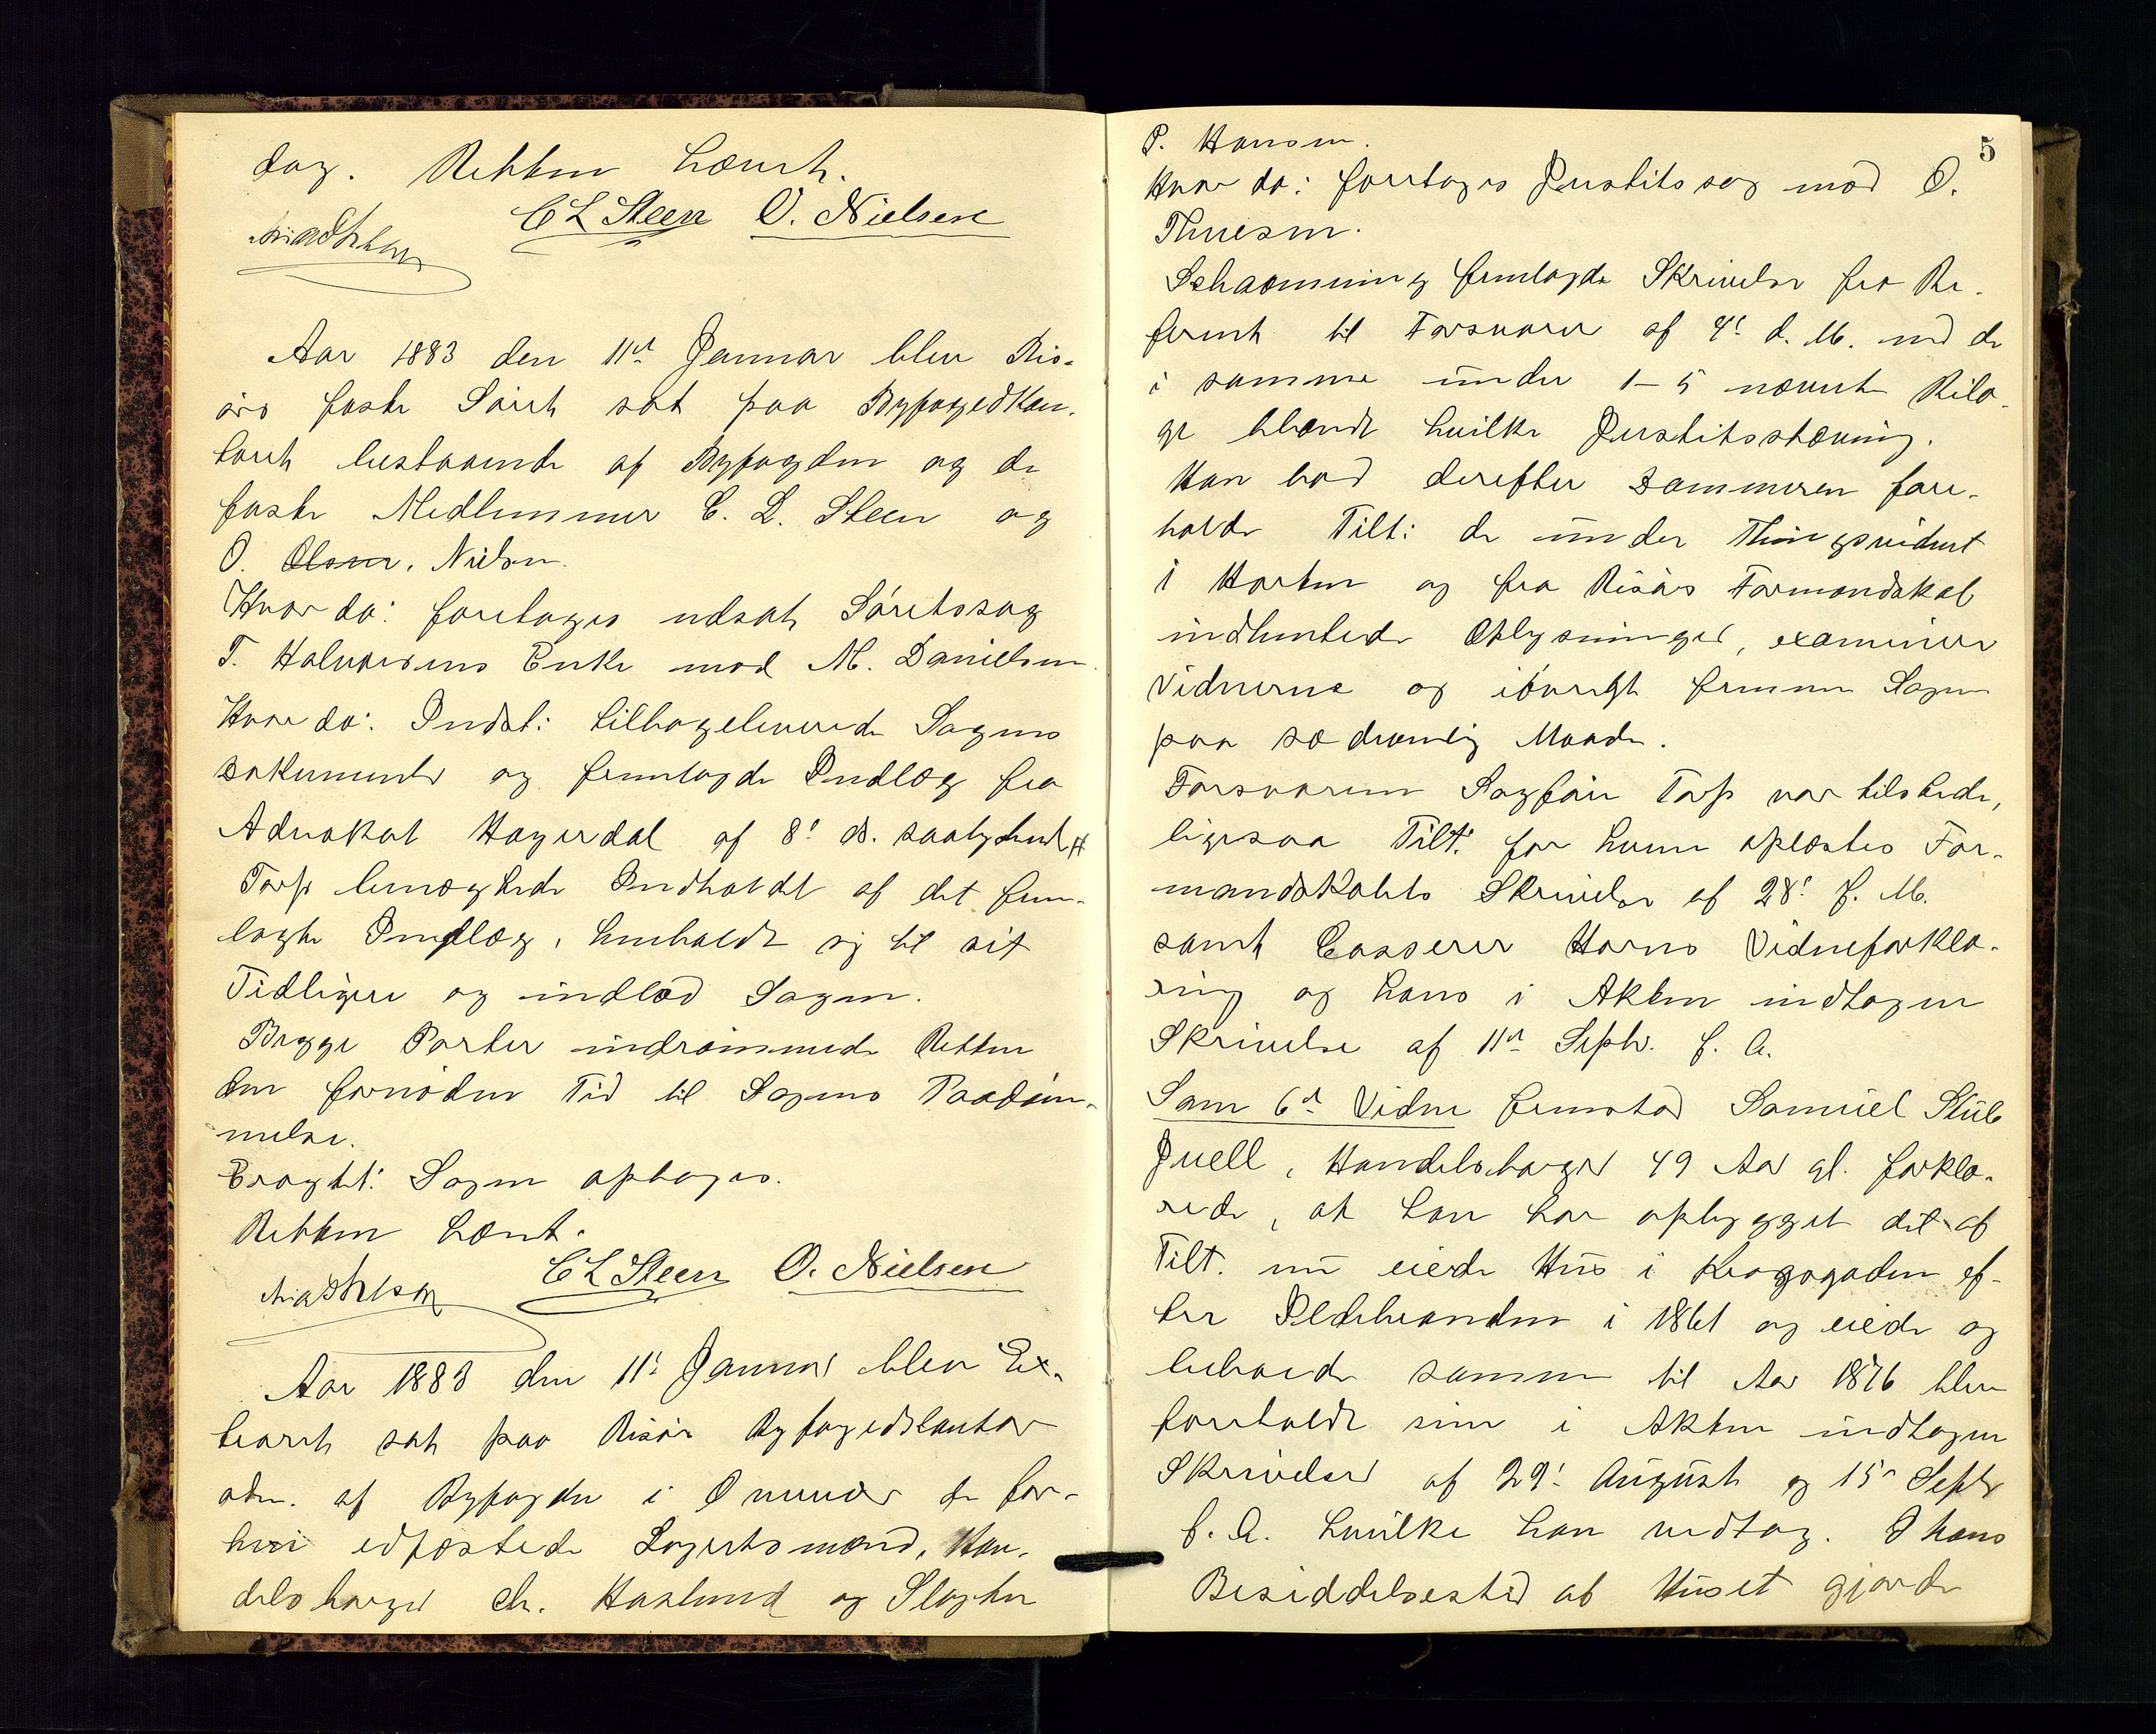 dag. Retten hævet.
CL Steen O. Nielsen
Aar 1883 den 11te Januar blev Ris-
örs faste Söret sat paa Byfogedkon-
toret bestaaende af Byfogden og de
faste Medlemmer C. L. Steen og
O. Olsen, Nielsen.
Hvor da: foretoges udsat Söretssag
T. Halvorsens Enke mod M. Danielsen.
Hvor da: Indst: tilbageleverede Sagens
Dokumenter og fremlagde Indlæg fra
Advokat Hagerdal af 8de ds. saalydende #
Torp benægtede Indholdet af det frem-
lagte Indlæg, henholdt sig til sit
Tidligere og indlod Sagen.
Begge Parter indrömmede Retten
den fornödne Tid til Sagens Paadöm-
melse.
Eragtet: Sagen optages.
Retten hævet.
CL Steen O. Nielsen
Aar 1883 den 11te Januar blev Ex-
traret sat paa Risör Byfogedkontor
adm. af Byfogden i Overvær af de for-
hen edfæstede Lagrettesmænd, Han-
delsborger Chr. Haslund og Slagter
5
P. Hansen.
Hvor da: foretoges Justitssag mod O.
Thuesen.
Schaanning fremlagde Skrivelse fra Re-
ferent til Forsvarer af 4de d. M. med de
i samme under 1-5 nævnte Bila-
ge blandt hvilke Justitsstævning.
Han bad derefter Dommeren fore-
holde Tilt: de under Thingsvidnet
i Horten og fra Risörs Formandskab
indhentede Oplysninger, examinere
Vidnerne og iövrigt fremme Sagen
paa sædvanlig Maade.
Forsvareren Sagförer Torp var tilstede,
ligesaa Tilt: for hvem oplæstes For-
mandskabets Skrivelse af 28de f. M.
samt Casserer Horns Vidneforkla-
ring og hans i Akten indtagne
Skrivelse af 11te Septbr. f. A.
Som 6te Vidne fremstod Samuel Stub
Juell, Handelsborger 49 Aar gl. forkla-
rede, at han har opbygget det af
Tilt. nu eiede Hus i Kragsgaden ef-
ter Ildebranden i 1861 og eiede og
beboede samme til Aar 1876 blev
foreholdt sine i Akten indtagne
Skrivelser af 29de August og 15de Septbr
f. A. hvilke han vedtog. I hans
Besiddelsestid af Huset gjorde